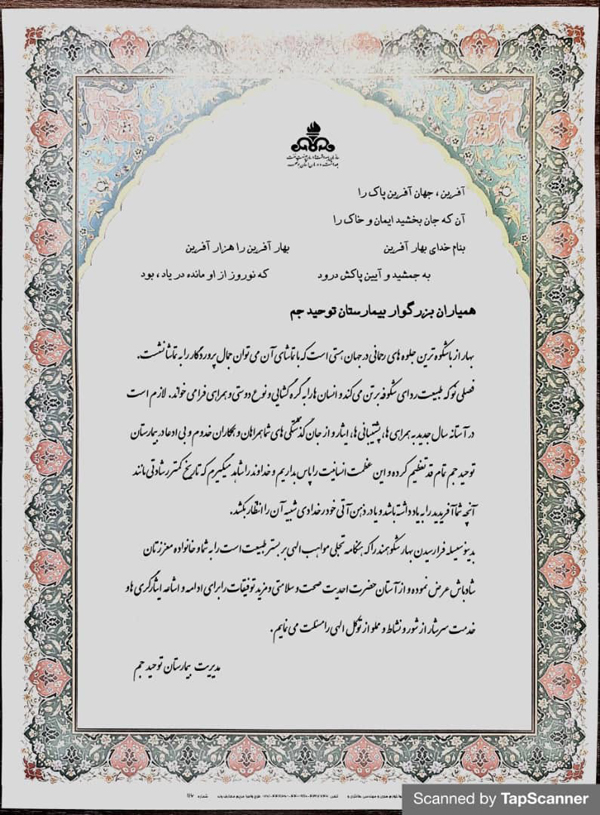 آفرین ، جهان آفرین پاک را
آن که جان بخشید ایمان و خاک را
بنام خدای بهار آفرین بهار آفرین را هزار آفرین
به جمشید و آیین پاکش درود که نوروز از او مانده در یاد ، بود
همیاران بزرگوار بیمارستان توحید جم
بهار از باشکوه ترین جلوه های رحمانی در جهان هستی است که با تماشای آن می توان جمال پروردگار را به تماشا نشست.
فصلی نو که طبیعت ردای شکوفه بر تن می کند و انسان ها را به گره گشایی و نوع دوستی و همراهی فرا می خواند. لازم است
در آستانه سال جدید به همراهی ها، پشتیبانی ها، ایثار و از جان گذشتگی های شما همراهان و همکاران خدوم و بی ادعا در بیمارستان
توحید جم تمام قد تعظیم کرده و این عظمت انسانیت را پاس بداریم و خداوند را شاهد میگیرم که تاریخ کمتر رشادتی مانند
آنچه شما آفریدید را به یاد داشته باشد و یا در ذهن آتی خود رخدادی شبیه آن را انتظار بکشد.
بدینوسیله فرا رسیدن بهار شکوهمند را که هنگامه تجلی مواهب الهی بر بستر طبیعت است را به شما و خانواده معززتان
شادباش عرض نموده و از آستان حضرت احدیت صحت و سلامتی و مزید توفیقات را برای ادامه و اشاعه ایثارگری ها و
خدمت سرشار از شور و نشاط و مملو از توکل الهی را مسئلت می نمایم .
مدیریت بیمارستان توحید جم
Scanned by TapScanner